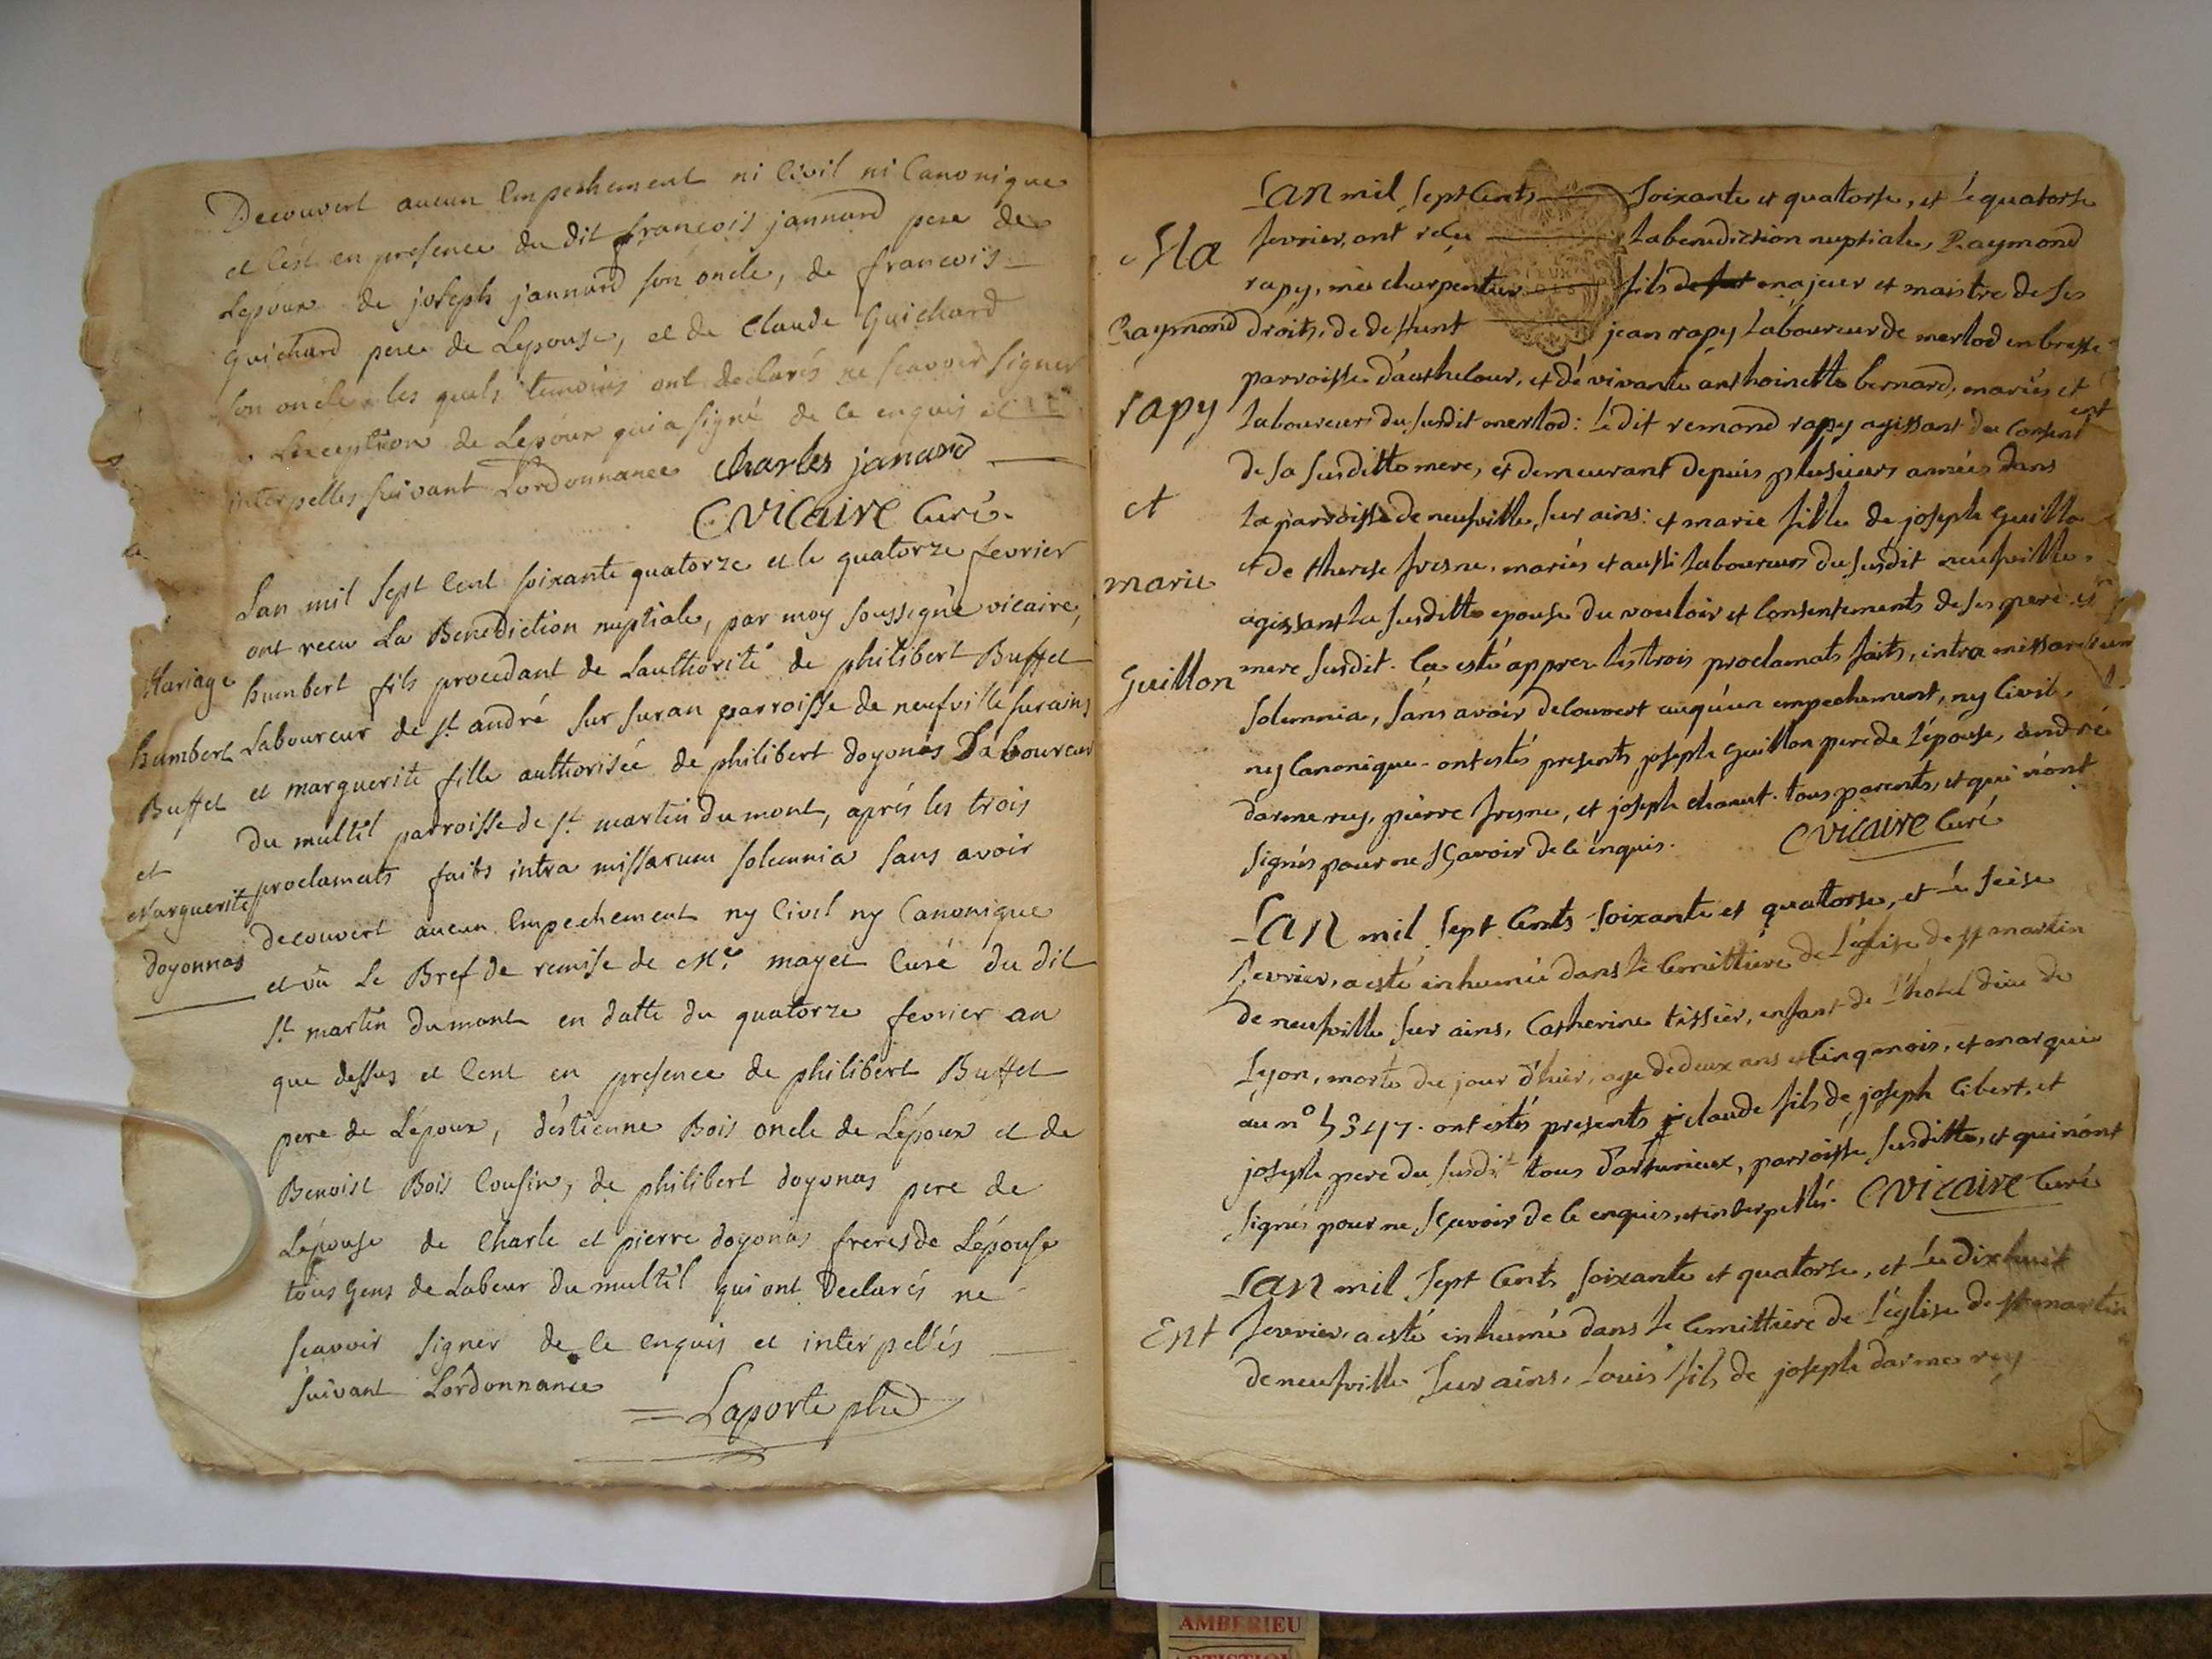 Decouvert aucun Empechement ni Civil ni Canonique
et C'est en presence du dit francois jannard pere de
Lépoux de joseph jannard son oncle, de francois
Guichard pere de Lépouse, et de Claude Guichard
son oncle les quels temoins ont declarés ne scavoir signer
Léxception de Lépoux qui a signé de ce enquis et
interpellés suivant Lordonnance charles janard
C vicaire Curé.
Lan mil sept Cent soixante quatorze et le quatorze fevrier
ont recu La Benediction nuptiale, par moy soussigné vicaire,
Mariage
humbert fils procedant de Lauthorité de philibert Buffet
humbert
Laboureur de st. andré sur suran parroisse de neufville surains
Buffet
et marguerite fille authorisée de philibert doyonas Laboureur
du multil parroisse de st. martin du mont, aprés les trois
et
proclamats faits intra missarum solemnia sans avoir
Marguerite
decouvert aucun Empechement ny Civil ny Canonique
doyonnas
et vû Le Bref de remise de Mre. mayet Curé du dit
st. martin dumont en datte du quatorze fevrier an
que dessus et Cent en presence de philibert Buffet
pere de Lépoux, déstienne Bois oncle de Lépoux et de
Benoist Bois Cousin, de philibert doyonas pere de
Lépouse de Charle et pierre doyonas freres de Lépouse
tous gens de Labeur du multil qui ont Declarés ne
scavoir signer de ce enquis et interpellés
suivant Lordonnance
Laporte ptre
Lan mil sept Cents soixante et quatorse, et le quatorse
Ma
fevrier, ont reçu la benediction nuptiale, Raymond
rapy, mtre charpentier fils majeur et maistre de ses
Raymond
droits, de deffunt jean rapy laboureur de merlod en bresse
parroisse et dé vivante anthoinette bernard, mariés et
rapy
laboureurs du susdit merlod: le dit remond rapy agissant du Consent
ent
de sa susditte mere, et demeurant depuis plusieurs années dans
et
la parroisse de neufville sur ains: et marie fille de joseph Guillon
et de therese fresne, mariés et aussi laboureurs du susdit neufville,
marie
agissant la susditte epouse du vouloir et Consentements de ses pere et
Guillon
mere susdit. Ca esté apprez les trois proclamats faits, intra missarum
solemnia, sans avoir decouvert auqu'un empechement, ny Civil,
ny Canonique. ont estés presents joseph Guillon pere de l'épouse, andré
darmerey, pierre fresne, et joseph chanut. tous parents, et qui n'ont
signés pour ne sçavoir de ce enquis.
C vicaire Curé
Lan mil sept Cents soixante et quatorse, et le seise
fevrier, a esté inhumée dans le Cemittiere de l'église de st martin
de neufville sur ains, Catherine tissier, enfant de l'hotel dieu de
Lyon, morte du jour d'hier, age de deux ans et Cinq mois, et marquée
au no 5347. ont estés presents claude fils de joseph Cibert, et
joseph pere du susdit tous d'arturieux, parroisse susditte, et qui n'ont
signés pour ne sçavoir de ce enquis, et interpellés. C vicaire Curé
Lan mil sept Cents soixante et quatorse, et le dixhuit
Ent
fevrier, a esté inhumé dans le Cemittiere de l'église de st martin
de neufville sur ains, louis fils de joseph darmerey
AMBERIEU